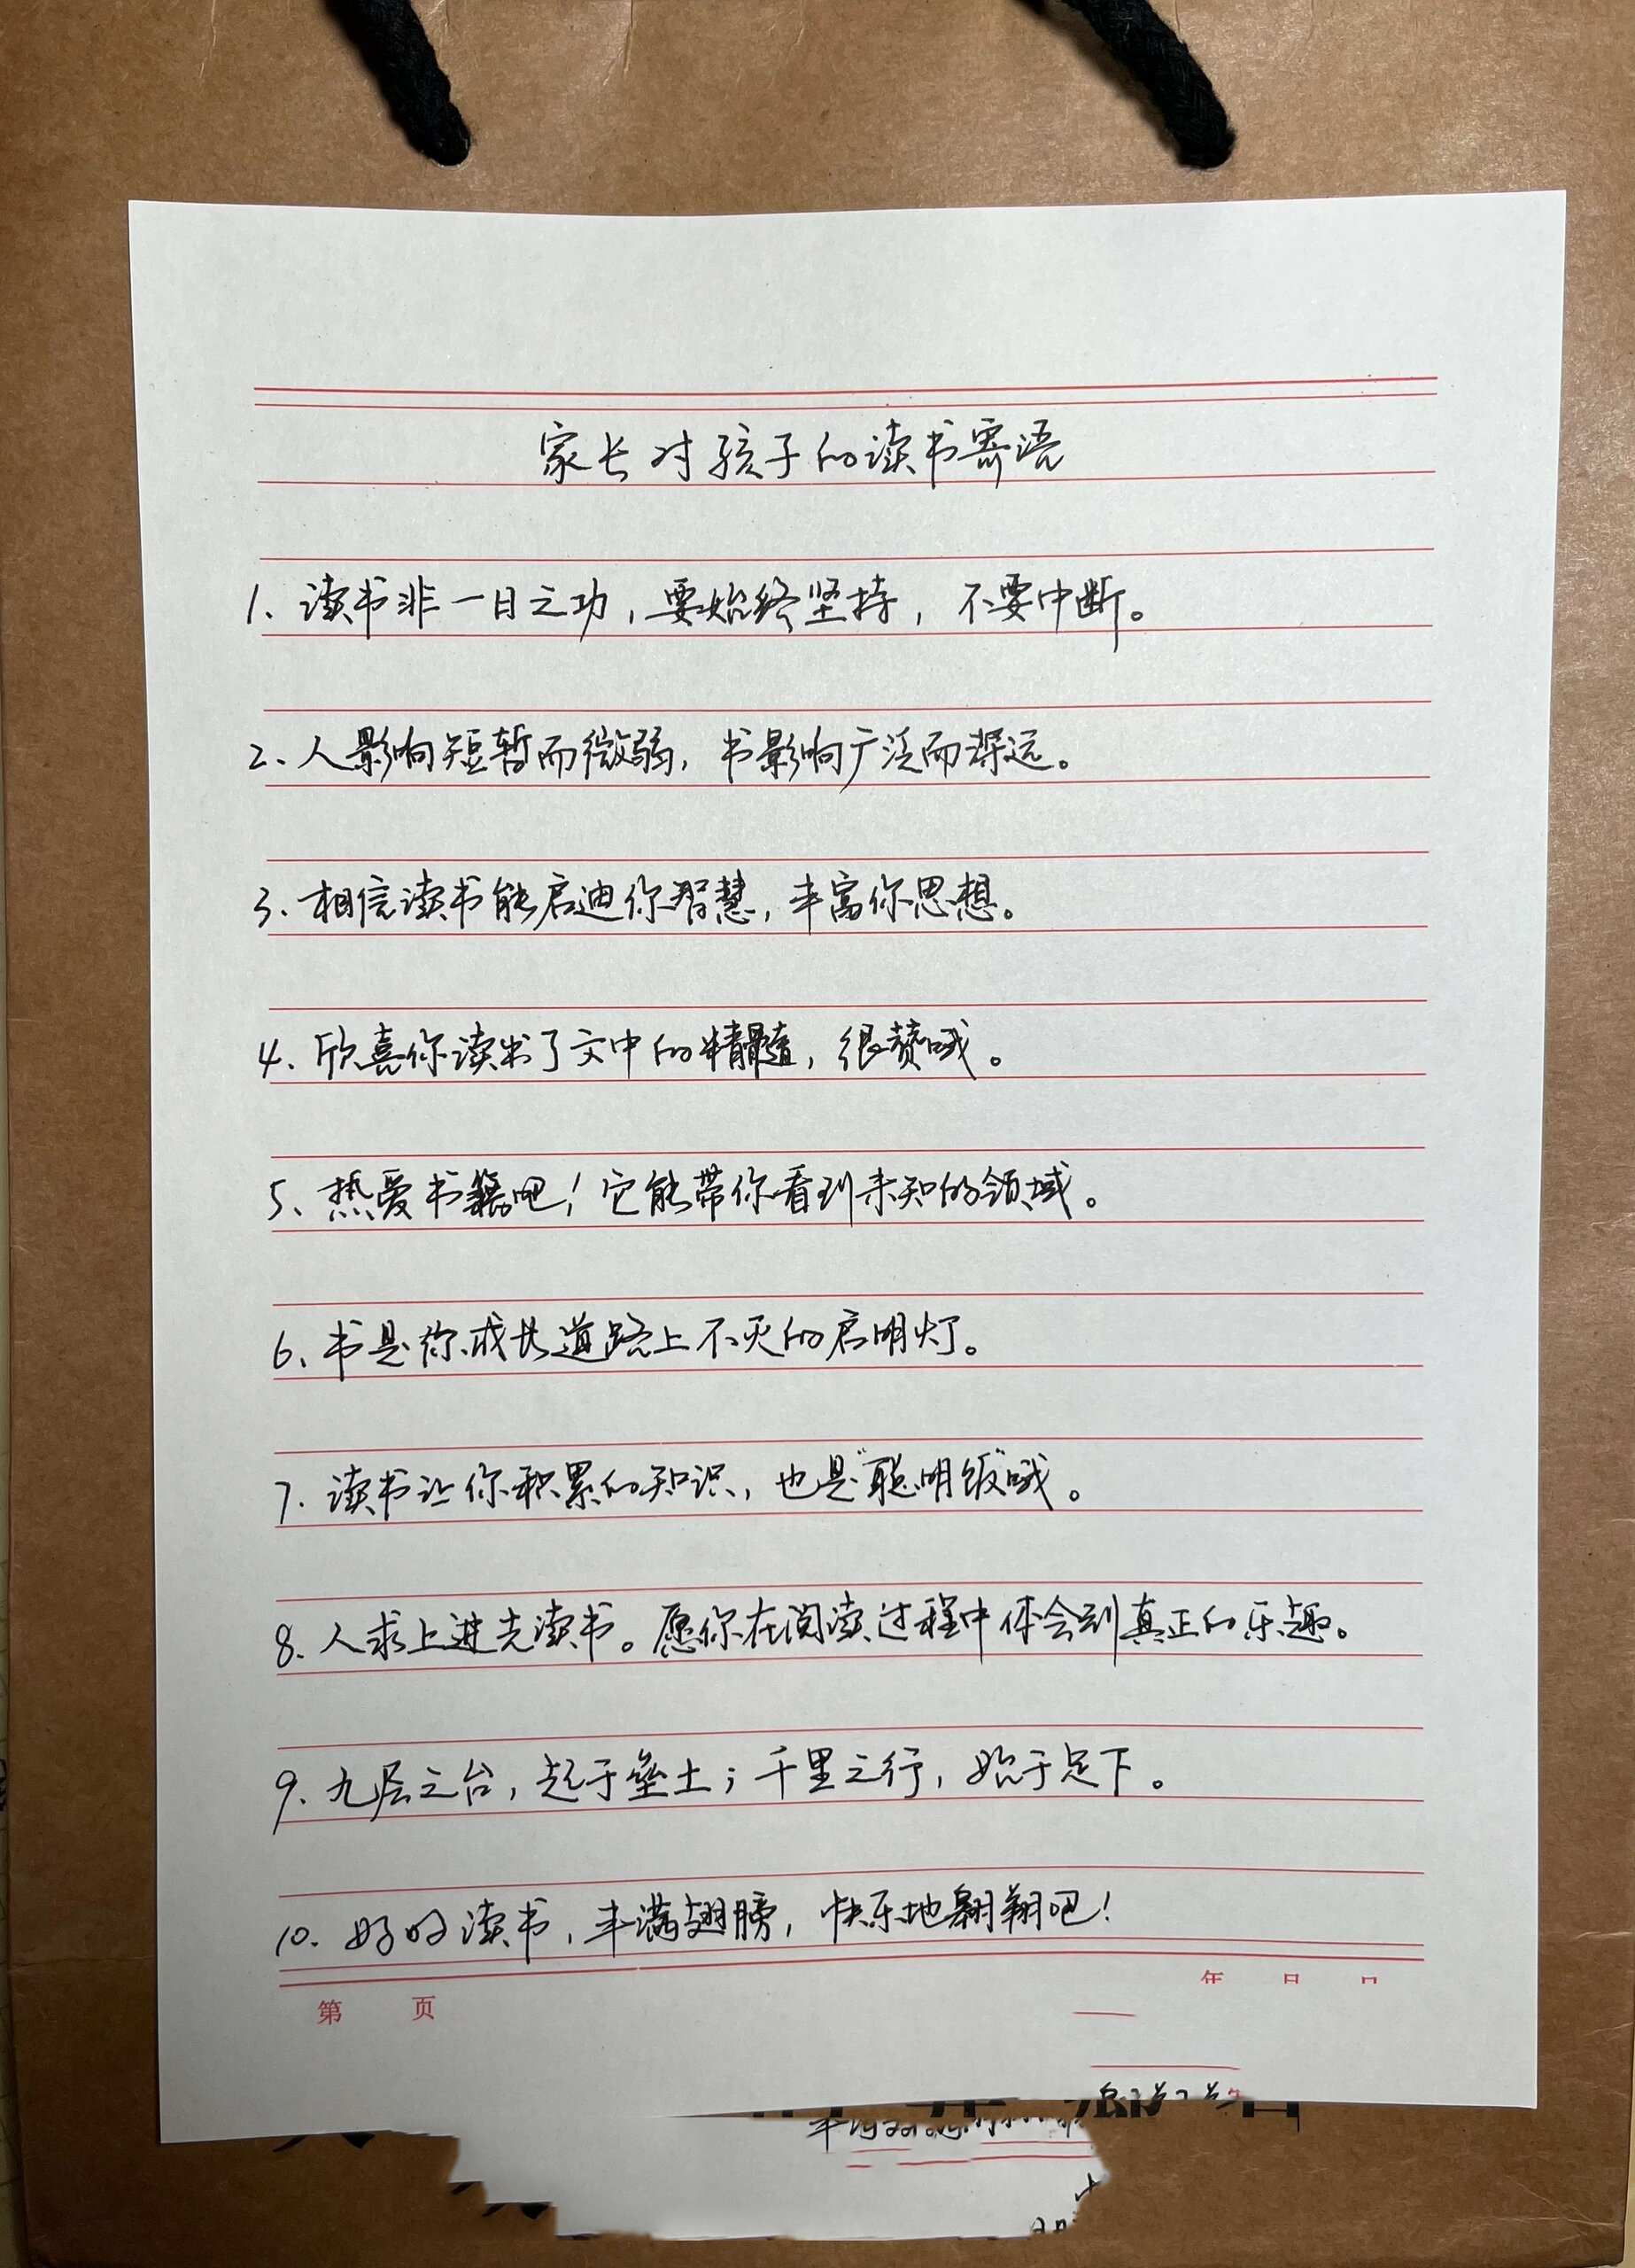 家长对孩子的读书寄语
1、读书非一日之功，要始终坚持，不要中断。
2、人影响短暂而微弱，书影响广泛而深远。
3、相信读书能启迪你智慧，丰富你思想。
4、欣喜你读出了文中的精髓，很赞哦。
5、热爱书籍吧！它能带你看到未知的领域。
6、书是你成长道路上不灭的启明灯。
7、读书让你积累的知识，也是“聪明饭”哦。
8、人求上进先读书。愿你在阅读过程中体会到真正的乐趣。
9、九层之台，起于垒土；千里之行，始于足下。
10、好好读书，丰满翅膀，快乐地翱翔吧！
年 月 日
第 页